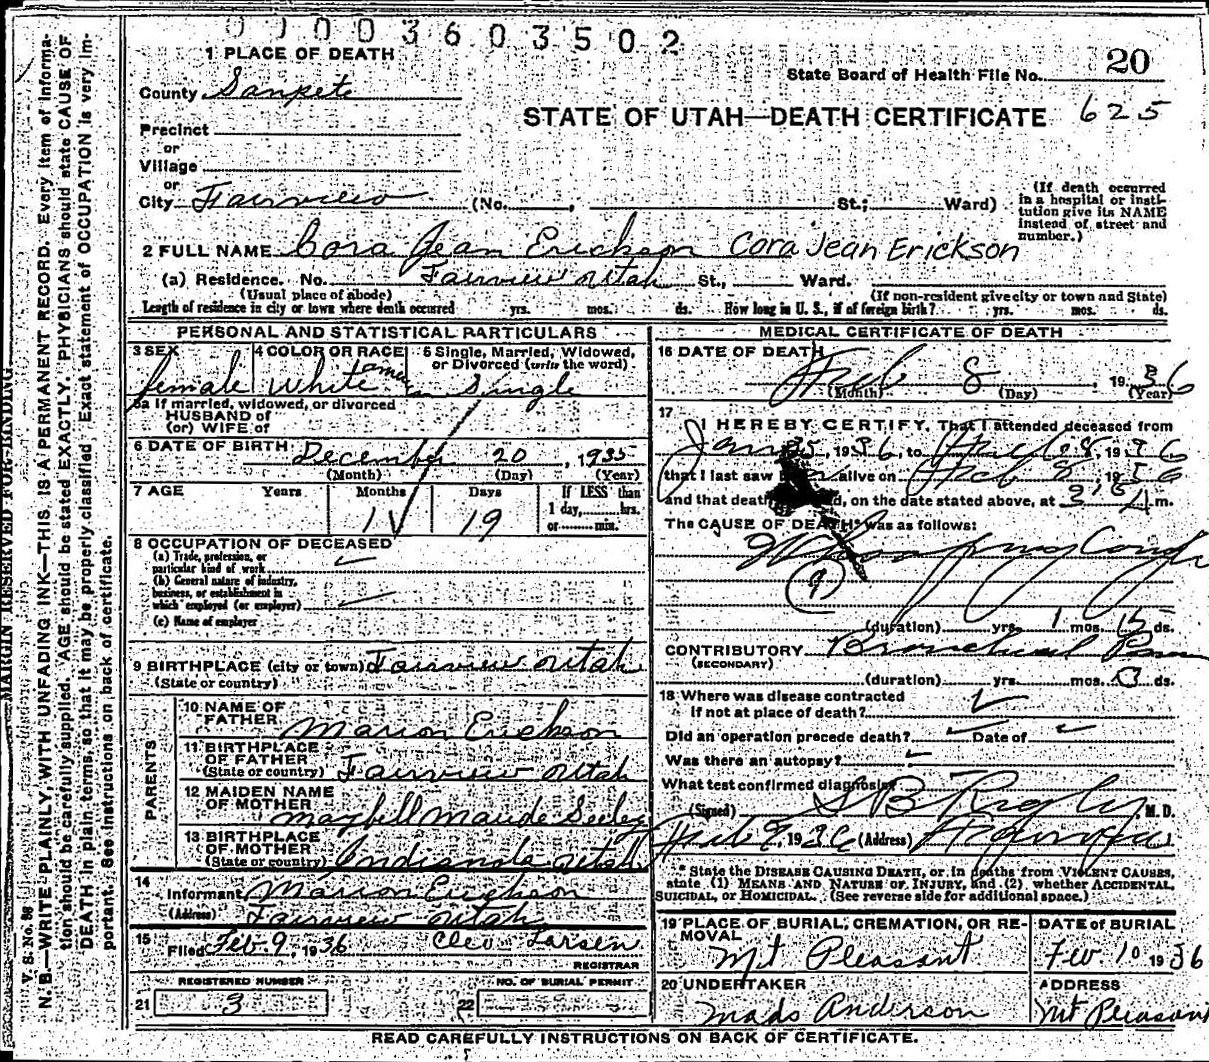 0 0 0 3 6 0 3 5 0 2
1 PLACE OF DEATH
State Board of Health File No. 20
County Sanpete
STATE OF UTAH—DEATH CERTIFICATE 625
Precinct
or
Village
or
City Fairview (No. , St.; Ward)
(If death occurred in a hospital or institution give its NAME instead of street and number.)
2 FULL NAME Cora Jean Erickson Cora Jean Erickson
(a) Residence. No. Fairview Utah St., Ward.
(Usual place of abode) (If non-resident give city or town and State)
Length of residence in city or town where death occurred yrs. mos. ds. How long in U. S., if of foreign birth? yrs. mos. ds.
PERSONAL AND STATISTICAL PARTICULARS
3 SEX 4 COLOR OR RACE 5 Single, Married, Widowed, or Divorced (write the word)
female White Single
5a If married, widowed, or divorced
HUSBAND of
(or) WIFE of
6 DATE OF BIRTH December 20, 1935
(Month) (Day) (Year)
7 AGE Years Months Days If LESS than
1 day, hrs.
or min.
1 19
8 OCCUPATION OF DECEASED
(a) Trade, profession, or
particular kind of work
(b) General nature of industry,
business, or establishment in
which employed (or employer)
(c) Name of employer
9 BIRTHPLACE (city or town) Fairview Utah
(State or country)
PARENTS
10 NAME OF
FATHER Marion Erickson
11 BIRTHPLACE
OF FATHER
(State or country) Fairview Utah
12 MAIDEN NAME
OF MOTHER Maybell Maude Seeley
13 BIRTHPLACE
OF MOTHER
(State or country) Indianola Utah
14
Informant Marion Erickson
(Address) Fairview Utah
15
Filed Feb. 9, 1936 Cleo Larsen
REGISTRAR
REGISTERED NUMBER NO. OF BURIAL PERMIT
21 3 22
MEDICAL CERTIFICATE OF DEATH
16 DATE OF DEATH
Feb 8, 1936
(Month) (Day) (Year)
17
I HEREBY CERTIFY, That I attended deceased from
Jan 25, 1936, to Feb 8, 1936
that I last saw alive on Feb 8, 1936
and that death, on the date stated above, at m.
The CAUSE OF DEATH* was as follows:
Whooping Cough
(9)
(duration) yrs. 1 mos. 15 ds.
CONTRIBUTORY Bronchial Pneu
(SECONDARY)
(duration) yrs. mos. 3 ds.
18 Where was disease contracted
if not at place of death?
Did an operation precede death? Date of
Was there an autopsy?
What test confirmed diagnosis
(Signed) S B Rigby, M. D.
Feb 9, 1936 (Address)
* State the DISEASE CAUSING DEATH, or in deaths from VIOLENT CAUSES,
state (1) MEANS AND NATURE OF INJURY, and (2) whether ACCIDENTAL,
SUICIDAL, or HOMICIDAL. (See reverse side for additional space.)
19 PLACE OF BURIAL, CREMATION, OR REMOVAL DATE OF BURIAL
Mt Pleasant Feb. 10 1936
20 UNDERTAKER ADDRESS
Mads Anderson Mt Pleasant
READ CAREFULLY INSTRUCTIONS ON BACK OF CERTIFICATE.
MARGIN RESERVED FOR BINDING
V. S. No. 86
N. B.—WRITE PLAINLY, WITH UNFADING INK—THIS IS A PERMANENT RECORD. Every item of informa-
tion should be carefully supplied. AGE should be stated EXACTLY. PHYSICIANS should state CAUSE OF
DEATH in plain terms, so that it may be properly classified. Exact statement of OCCUPATION is very im-
portant. See instructions on back of certificate.